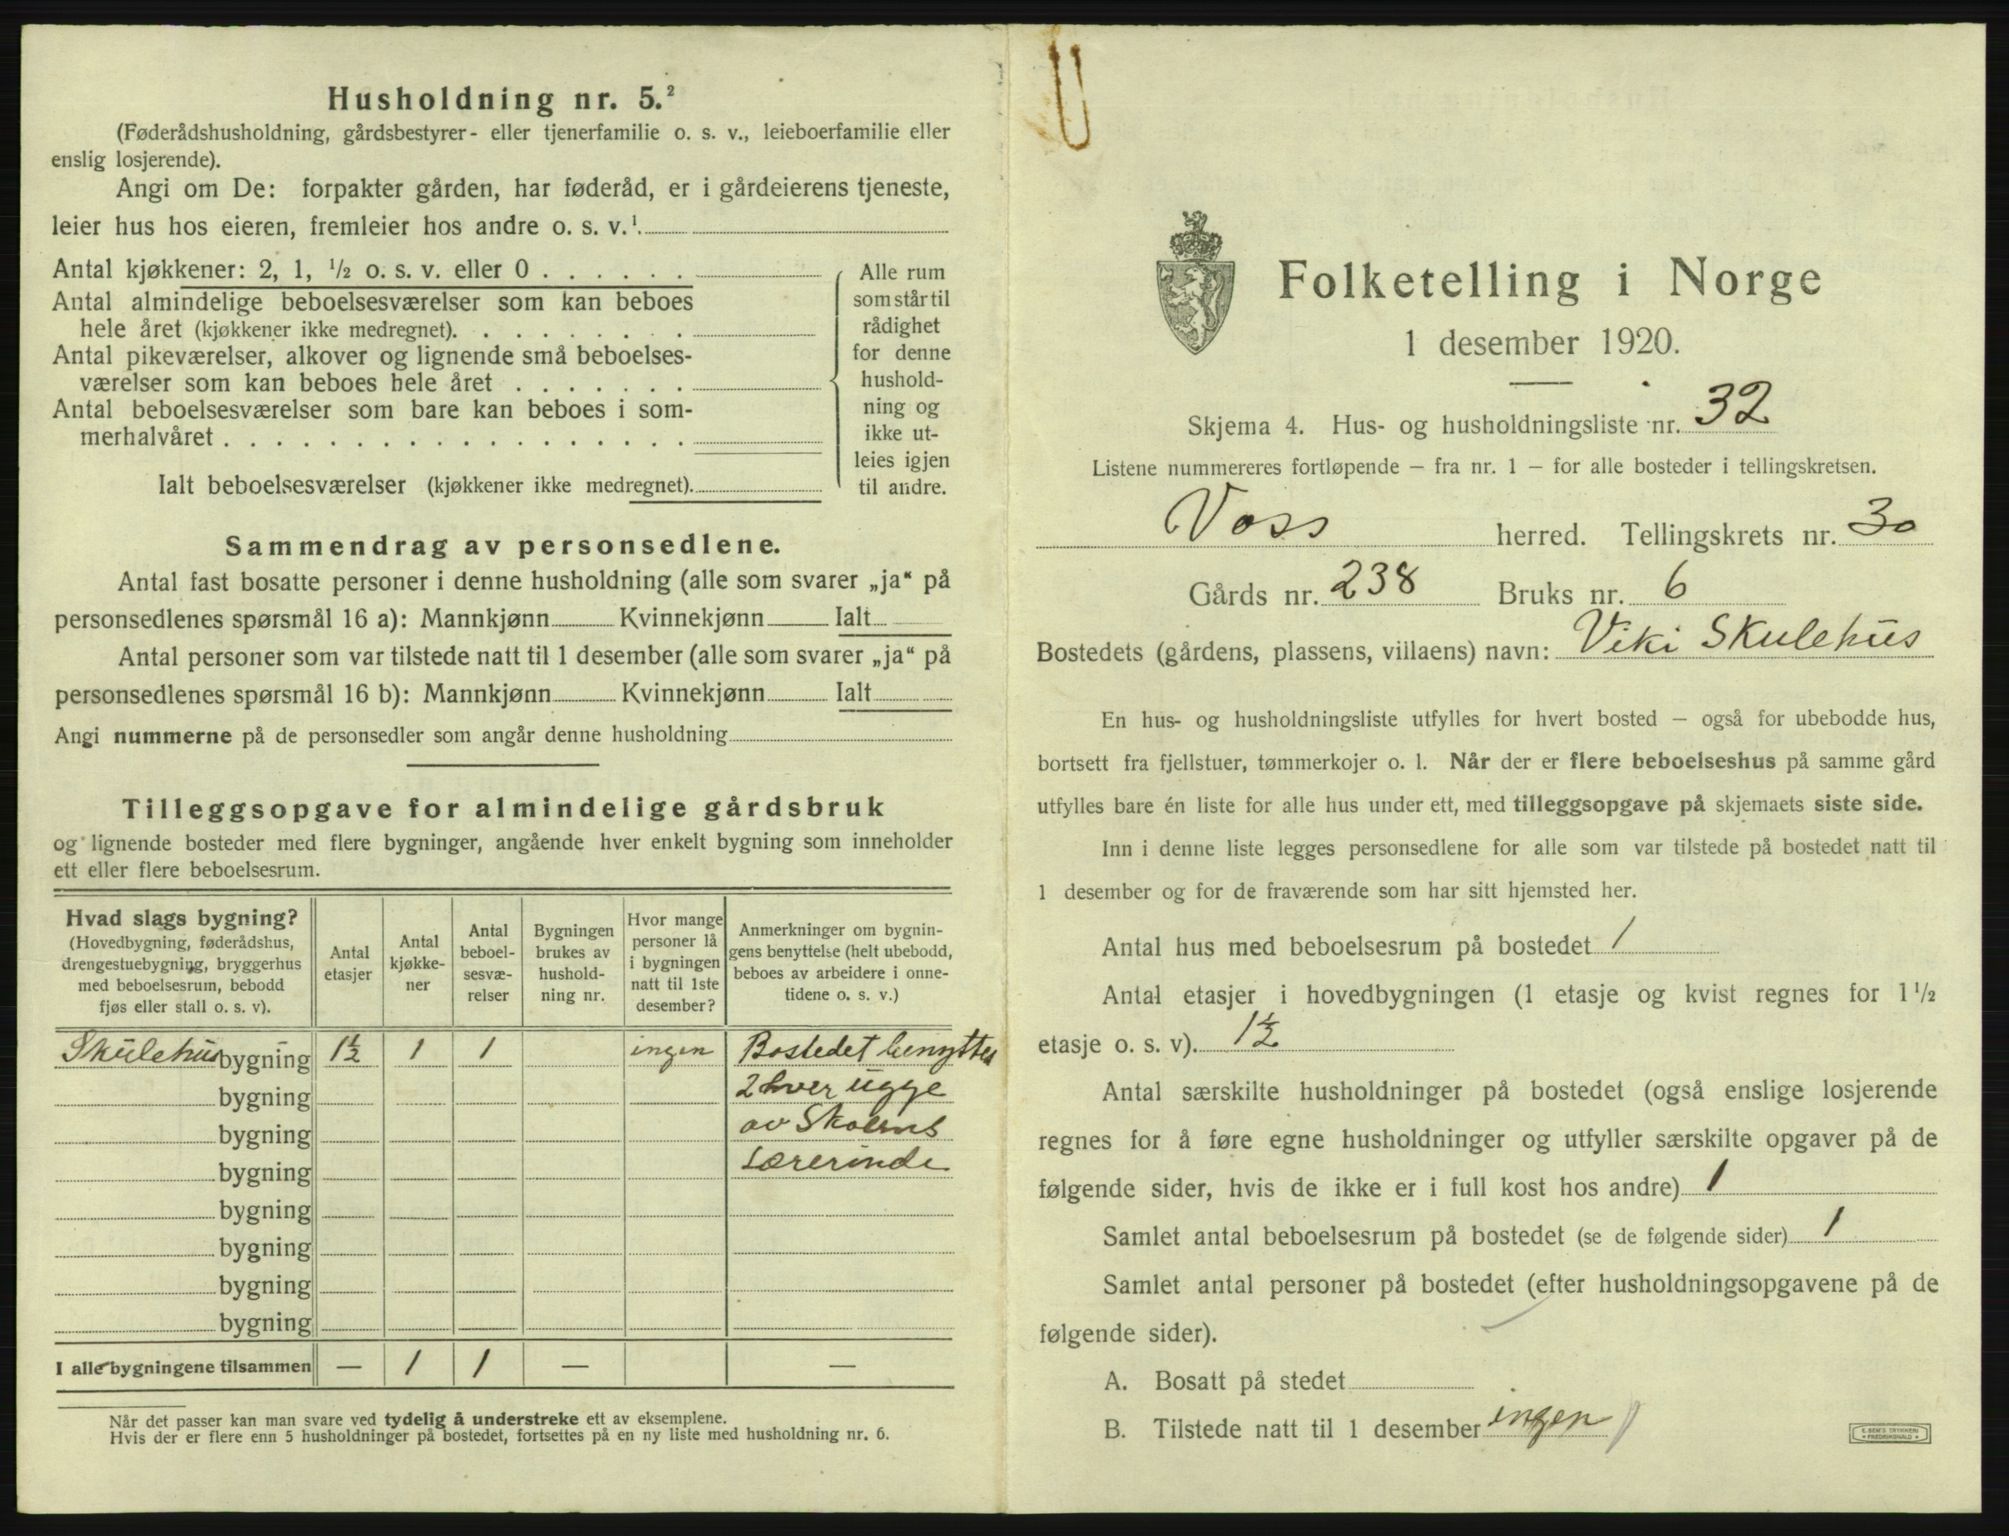 Husholdning nr. 5.²
(Føderådshusholdning, gårdsbestyrer- eller tjenerfamilie o. s. v., leieboerfamilie eller
enslig losjerende).
Angi om De: forpakter gården, har føderåd, er i gårdeierens tjeneste,
leier hus hos eieren, fremleier hos andre o. s. v.¹
Antal kjøkkener: 2, 1, ½ o. s. v. eller 0 . . . . . .
Antal almindelige beboelsesværelser som kan beboes
hele året (kjøkkener ikke medregnet). . . . . . . . .
Antal pikeværelser, alkover og lignende små beboelses-
værelser som kan beboes hele året . . . . . . .
Antal beboelsesværelser som bare kan beboes i som-
merhalvåret . . . . . . . . . . . . . . . . . .
Ialt beboelsesværelser (kjøkkener ikke medregnet).
Alle rum
som står til
rådighet
for denne
hushold-
ning og
ikke ut-
leies igjen
til andre.
Sammendrag av personsedlene.
Antal fast bosatte personer i denne husholdning (alle som svarer „ja“ på
personsedlenes spørsmål 16 a): Mannkjønn Kvinnekjønn Ialt
Antal personer som var tilstede natt til 1 desember (alle som svarer „ja“ på
personsedlenes spørsmål 16 b): Mannkjønn Kvinnekjønn Ialt
Angi nummerne på de personsedler som angår denne husholdning
Tilleggsopgave for almindelige gårdsbruk
og lignende bosteder med flere bygninger, angående hver enkelt bygning som inneholder
ett eller flere beboelsesrum.
Hvad slags bygning?
(Hovedbygning, føderådshus,
drengestuebygning, bryggerhus
med beboelsesrum, bebodd
fjøs eller stall o. s. v).
Antal
etasjer
Antal
kjøkke-
ner
Antal
beboel-
sesvæ-
relser
Bygningen
brukes av
hushold-
ning nr.
Hvor mange
personer lå
i bygningen
natt til 1ste
desember?
Anmerkninger om bygnin-
gens benyttelse (helt ubebodd,
beboes av arbeidere i onne-
tidene o. s. v.)
Skulehus bygning 1½ 1 1 ingen Bostedet benyttes
bygning 2 hver ugge
bygning av Skolens
bygning Lærerinde
bygning
bygning
bygning
bygning
I alle bygningene tilsammen — 1 1 — —
Når det passer kan man svare ved tydelig å understreke ett av eksemplene.
Hvis der er flere enn 5 husholdninger på bostedet, fortsettes på en ny liste med husholdning nr. 6.
Folketelling i Norge
1 desember 1920.
Skjema 4. Hus- og husholdningsliste nr. 32
Listene nummereres fortløpende – fra nr. 1 – for alle bosteder i tellingskretsen.
Voss herred. Tellingskrets nr. 30
Gårds nr. 238 Bruks nr. 6
Bostedets (gårdens, plassens, villaens) navn: Viki Skulehus
En hus- og husholdningsliste utfylles for hvert bosted – også for ubebodde hus,
bortsett fra fjellstuer, tømmerkojer o. l. Når der er flere beboelseshus på samme gård
utfylles bare én liste for alle hus under ett, med tilleggsopgave på skjemaets siste side.
Inn i denne liste legges personsedlene for alle som var tilstede på bostedet natt til
1 desember og for de fraværende som har sitt hjemsted her.
Antal hus med beboelsesrum på bostedet 1
Antal etasjer i hovedbygningen (1 etasje og kvist regnes for 1½
etasje o. s. v). 1½
Antal særskilte husholdninger på bostedet (også enslige losjerende
regnes for å føre egne husholdninger og utfyller særskilte opgaver på de
følgende sider, hvis de ikke er i full kost hos andre) 1
Samlet antal beboelsesrum på bostedet (se de følgende sider) 1
Samlet antal personer på bostedet (efter husholdningsopgavene på de
følgende sider).
A. Bosatt på stedet
B. Tilstede natt til 1 desember ingen